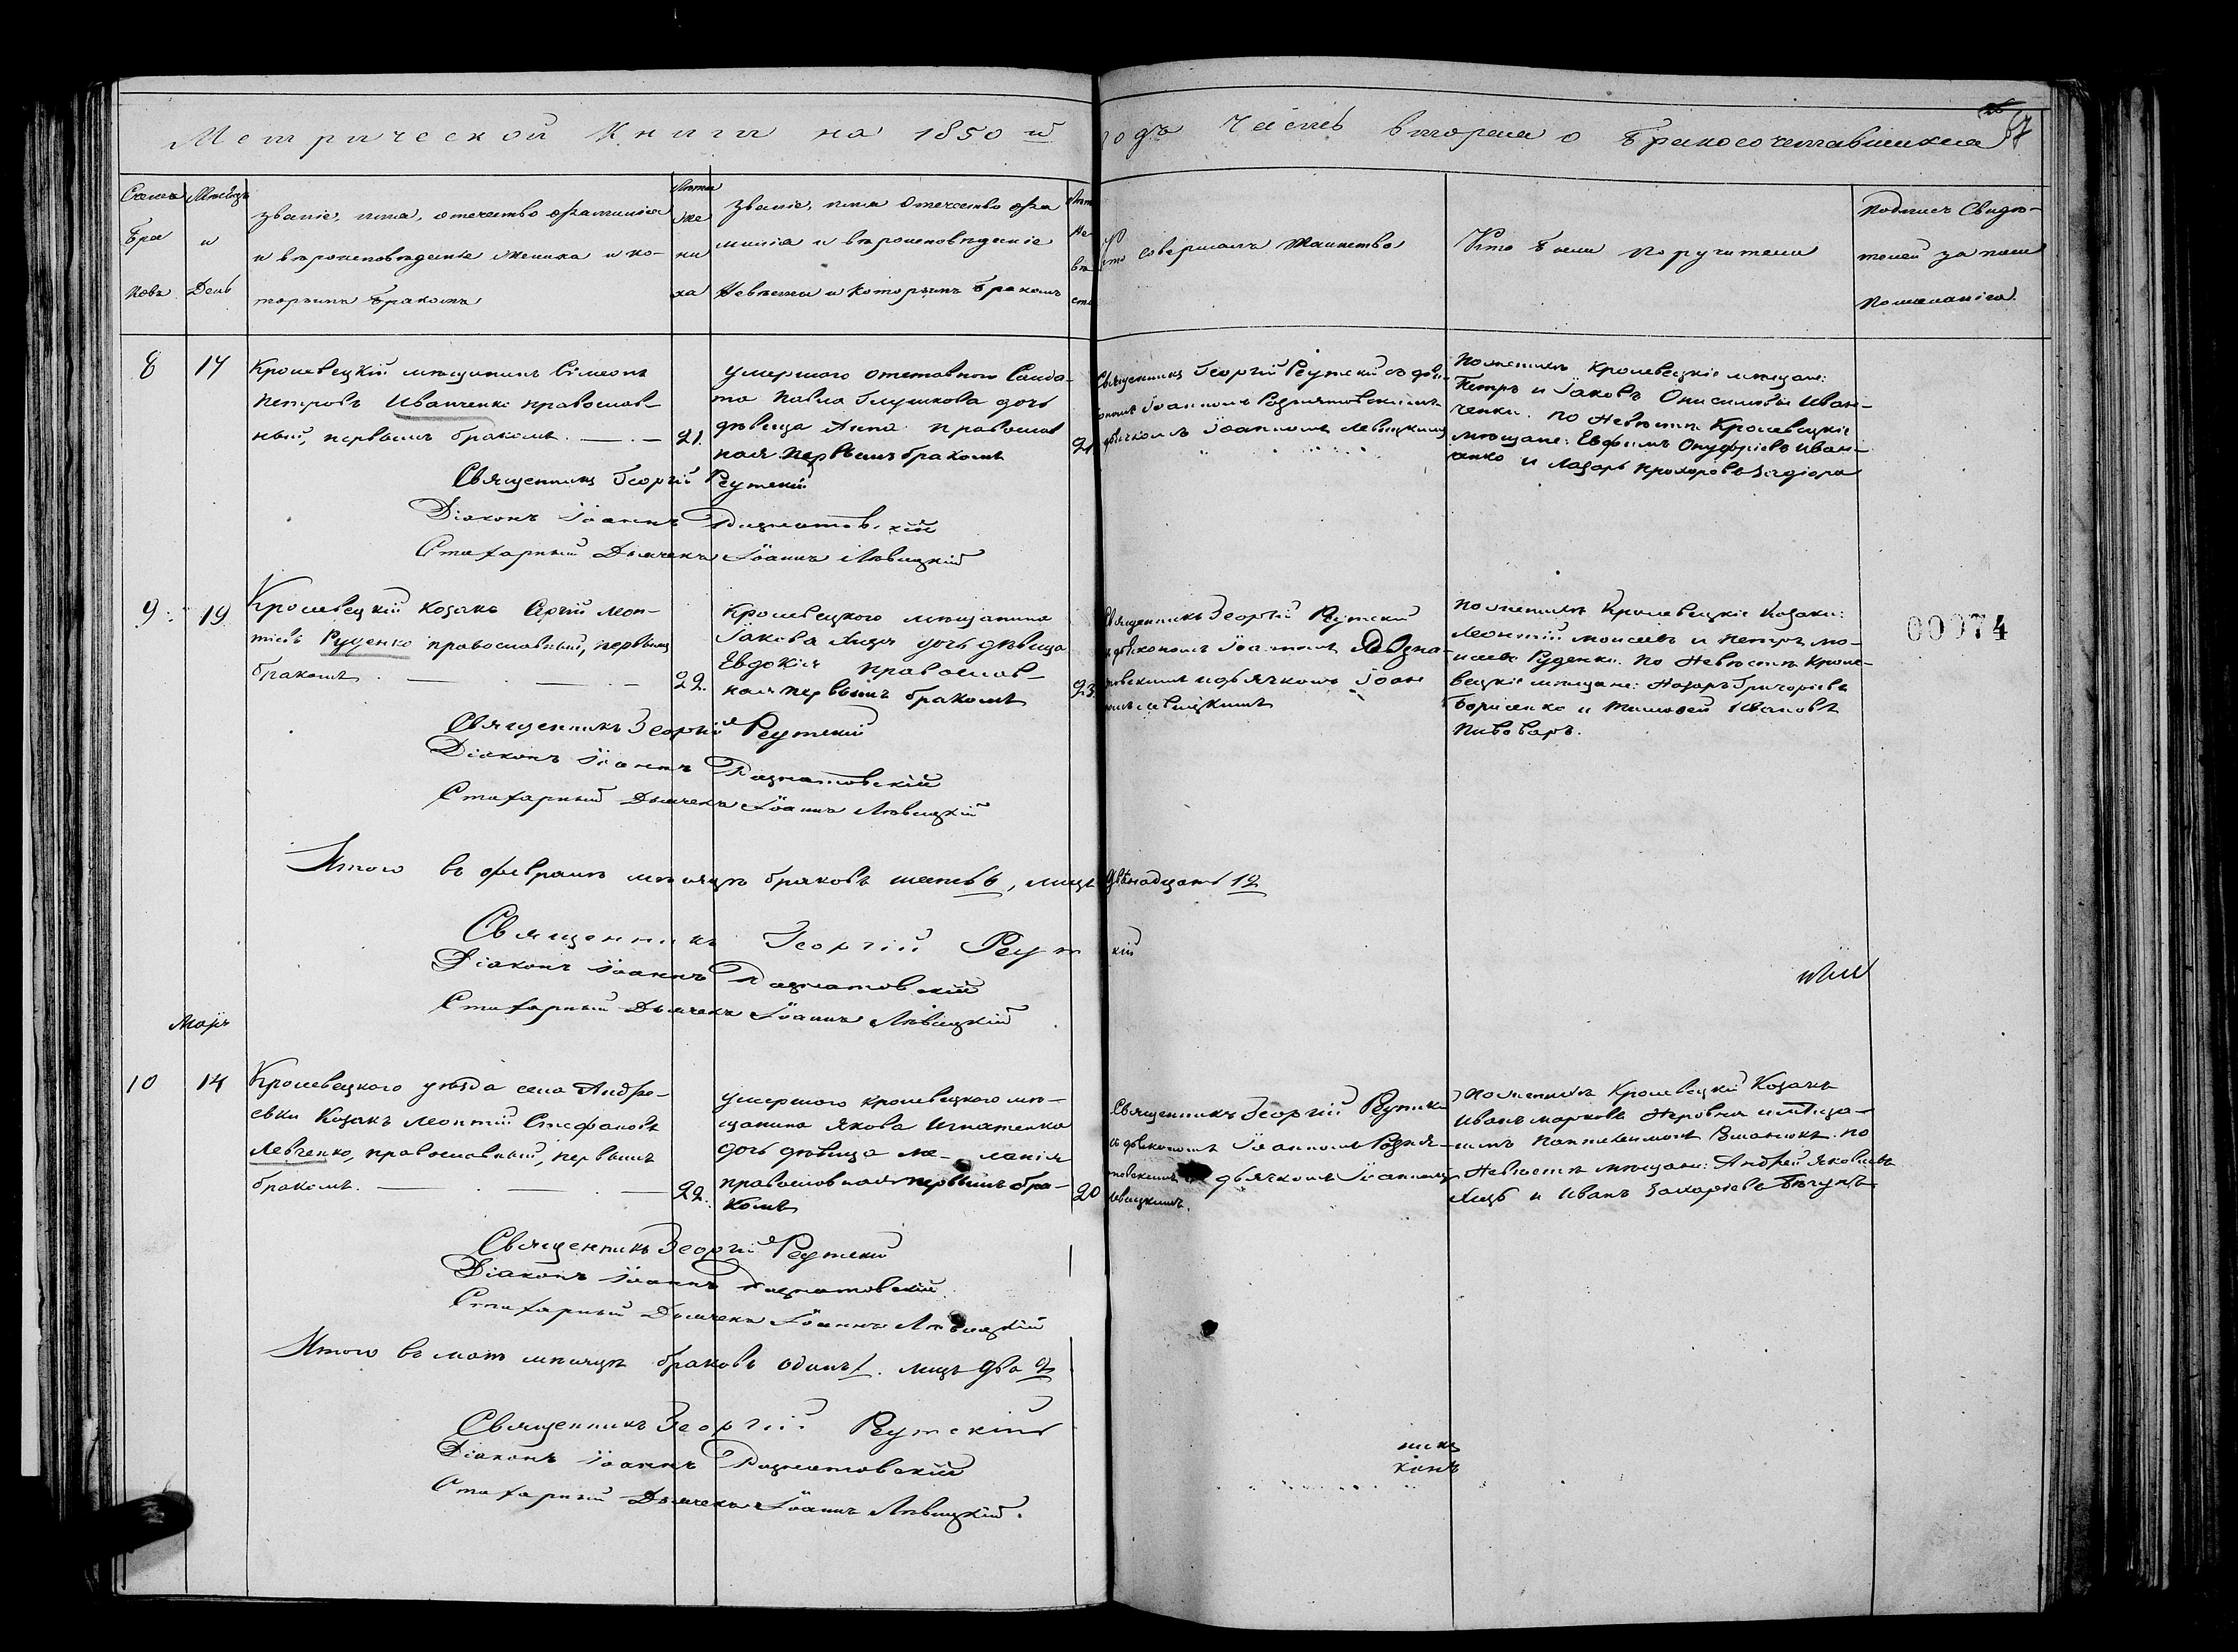 Метрической Книги на 1850 й годъ Часть вторая о бракосочетавшихся
67
Счетъ
Бра
ковъ
Мѣсяцъ
и
День
Званіе, имя, отечество фамилія
и вѣроисповѣданіе жениха и ко-
торымъ бракомъ
Лѣта
же
ни
ха
Званіе, имя отечество фа
милія и вѣроисповѣданіе
Невѣсты и которымъ бракомъ
Лѣт
Не
вѣ
сты
Кто совершалъ таинство
Кто были поручители
Подписъ Свидѣ-
телей за
8
17
Кролевецкій мѣщанинъ Симеонъ
Петровъ Иванченко православ-
ный, первымъ бракомъ.
21.
умершого отставного Солда-
та Павла Глушкова дочь
дѣвица Анна православ
ная первымъ бракомъ
21
Священникъ Георгій Реутскій съ дія-
кономъ Іоанномъ Рознятовскимъ
дьячкомъ Іоанномъ Левицкимъ
По женихѣ Кролевецкіе мѣщане:
Петръ и Іаковъ Онисимовы Иван-
ченки. по Невѣстѣ Кролевецкіе
мѣщане: Евфимъ Онуфріевъ Иван-
ченко и Лазарь Прохоровъ
Священникъ Георгій Реутскій
Діаконъ Іоаннъ Рознятовскій
Стихарный Дьячекъ Іоаннъ Лѣвицкій
9.
19
Кролевецкій козакъ Сергій Леон-
тіевъ Руденко православный, первымъ
бракомъ.
22.
Кролевецкого мѣщанина
Іакова дочь дѣвица
Евдокія православ-
ная первымъ бракомъ
23
Священникъ Георгій Реутскій
съ діякономъ Іоанномъ Розня-
товскимъ и дьячкомъ Іоан
номъ Левицкимъ
По женихѣ Кролевецкіе Козаки:
Леонтій Моисеевъ и Петръ Мо-
исеевъ Руденки. По Невѣстѣ Кроле-
вецкіе мѣщане: Назаръ Григоріевъ
Борисенко и Тимофей Ивановъ
Пивоваръ.
00074
Священникъ Георгій Реутскій
Діаконъ Іоаннъ Рознятовскій
Стихарный Дьячекъ Іоаннъ Лѣвицкій
Итого въ февралѣ мѣсяцѣ браковъ шесть 6, лицъ двѣнадцать 12
Священникъ Георгій Реутскій
Діаконъ Іоаннъ Рознятовскій
Стихарный Дьячекъ Іоаннъ Лѣвицкій
Маръ
10
14
Кролевецкого уѣзда села Андре-
евки Козакъ Леонтій Стефановъ
Левченко, православный, первымъ
бракомъ.
22.
умершого кролевецкого мѣ-
щанина Якова Игнатенка
дочь дѣвица Ме-ланія
православная первымъ бра-
комъ
20
Священникъ Георгій Реутскій
съ діякономъ Іоанномъ Розня-
товскимъ дьячкомъ Іоанномъ
Левицкимъ.
По женихѣ Кролевецкій Козакъ
Иванъ Марковъ и
Пантелеимонъ по
Невѣстѣ мѣщане: Андрей Яковлевъ
и Иванъ Захаріевъ
Священникъ Георгій Реутскій
Діаконъ Іоаннъ Рознятовскій
Стихарный Дьячекъ Іоаннъ Лѣвицкій
Итого въ мартѣ мѣсяцѣ браковъ одинъ 1. лицъ два 2
Священникъ Георгій Реутскій
Діаконъ Іоаннъ Рознятовскій
Стихарный Дьячекъ Іоаннъ Лѣвицкій.